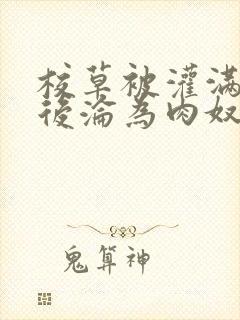 校草被灌滿
後淪為肉奴
鬼算神